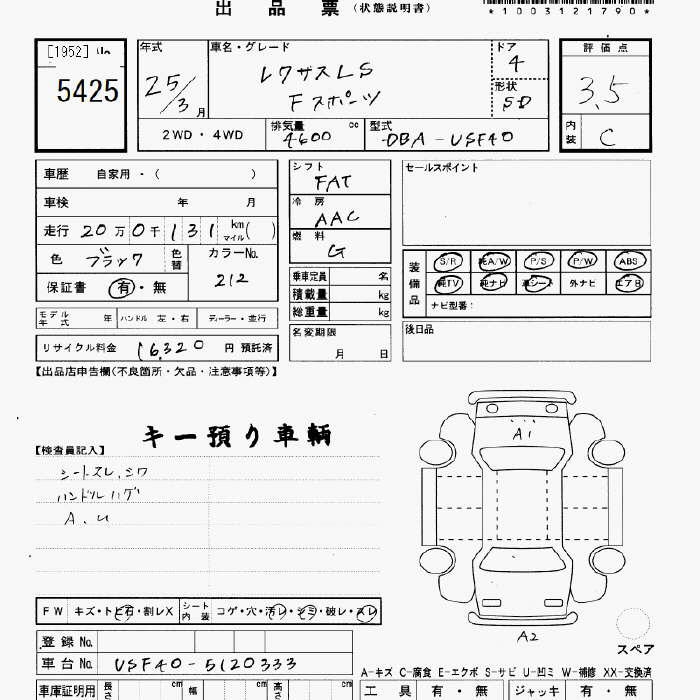 出 品 票 (状態説明書)
*1003121790*
[1952]
5425
年式 25/3 月
車名・グレード レクサスLS Fスポーツ
ドア 4
形状 SD
評価点 3.5
内装 C
2WD・4WD
排気量 4600 cc
型式 DBA-USF40
車歴 自家用・( )
車検 年 月
走行 20万0千131 km マイル( )
色 ブラック 色替
カラーNo. 212
保証書 有・無
シフト FAT
冷房 AAC
燃料 G
乗車定員 名
積載量 kg
総重量 kg
名変期限 月 日
セールスポイント
装備品 S/R 純A/W P/S P/W ABS
純TV 純ナビ 革シート 外ナビ エアB
ナビ型番:
後日品
モデル年式 年 ハンドル 左・右 ディーラー・並行
リサイクル料金 16,320 円 預託済
【出品店申告欄(不良箇所・欠品・注意事項等)】
キー預り車輌
【検査員記入】
シートスレ、シワ
ハンドルハゲ
A、U
A1
A2
スペア
FW キズ・トビ石・割レX シート内装 コゲ・穴・汚レ・シミ・破レ・スレ
登録 No.
車台 No. USF40-5120333
A-キズ C-腐食 E-エクボ S-サビ U-凹ミ W-補修 XX-交換済
車庫証明用 長さ cm 幅 cm 高さ cm
工具 有・無 ジャッキ 有・無